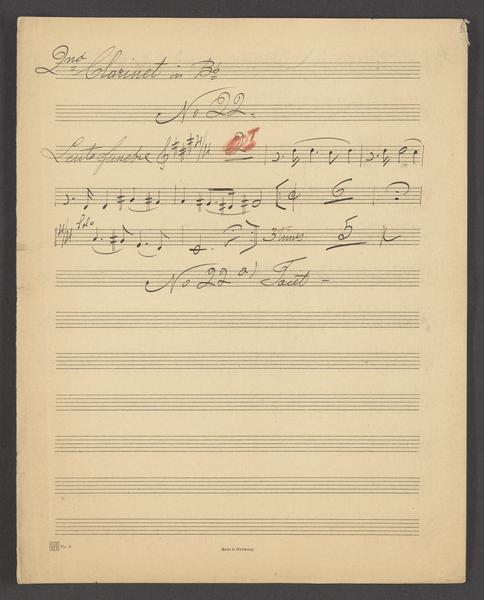 2nd Clarinet in Bb
No 22.
Lento funebre 4/4 2
6
4/4 Solo 3 times 5
No 22 a) Tacet -
No. 6 Made in Germany